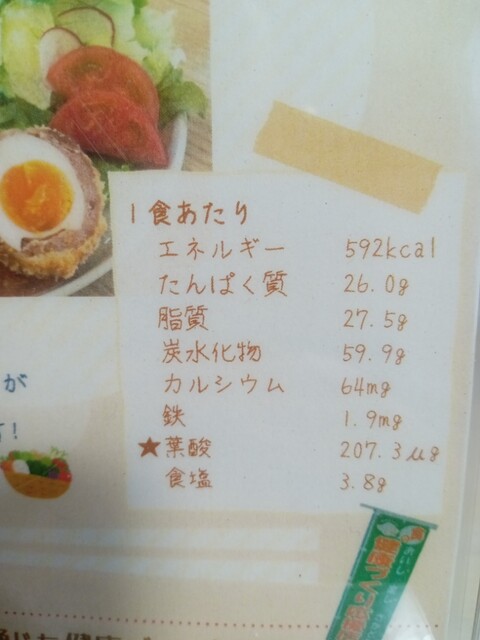 1食あたり
エネルギー 592kcal
たんぱく質 26.0g
脂質 27.5g
炭水化物 59.9g
カルシウム 64mg
鉄 1.9mg
★葉酸 207.3μg
食塩 3.8g
が
！
おいしく
健康づくり応援